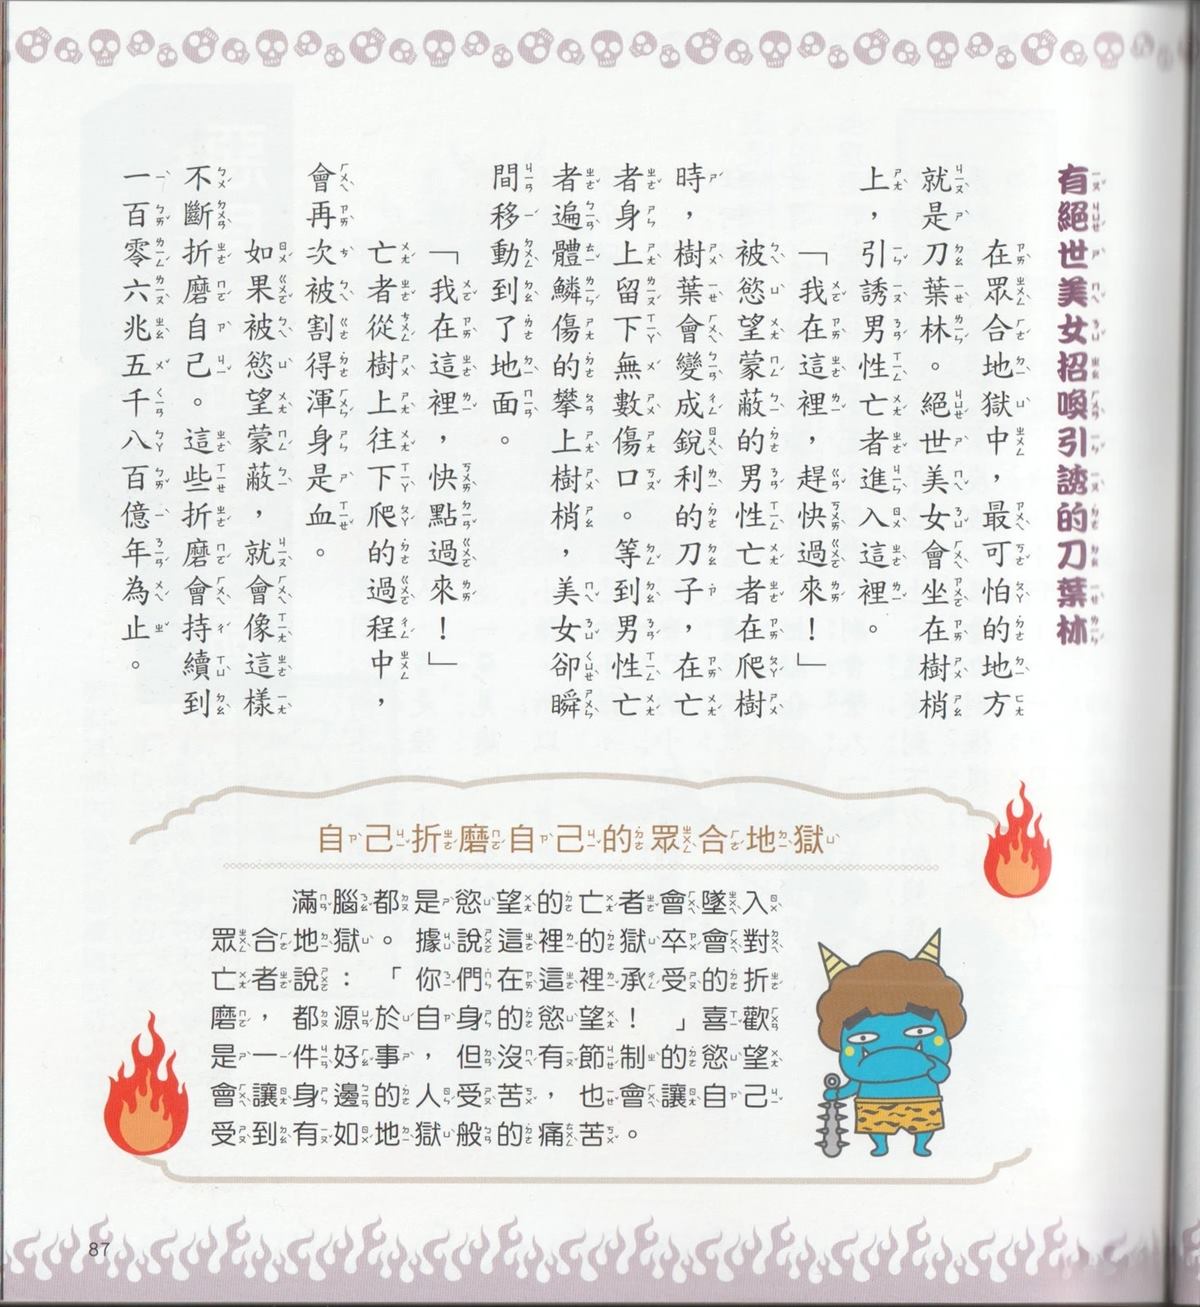 有絕世美女招喚引誘的刀葉林
在眾合地獄中，最可怕的地方
就是刀葉林。絕世美女會坐在樹梢
上，引誘男性亡者進入這裡。
「我在這裡，趕快過來！」
被慾望蒙蔽的男性亡者在爬樹
時，樹葉會變成銳利的刀子，在亡
者身上留下無數傷口。等到男性亡
者遍體鱗傷的攀上樹梢，美女卻瞬
間移動到了地面。
「我在這裡，快點過來！」
亡者從樹上往下爬的過程中，
會再次被割得渾身是血。
如果被慾望蒙蔽，就會像這樣
不斷折磨自己。這些折磨會持續到
一百零六兆五千八百億年為止。
自己折磨自己的眾合地獄
滿腦都是慾望的亡者會墜入
眾合地獄。據說這裡的獄卒會對
亡者說：「你們在這裡承受的折
磨，都源於自身的慾望！」喜歡
是一件好事，但沒有節制的慾望
會讓身邊的人受苦，也會讓自己
受到有如地獄般的痛苦。
87